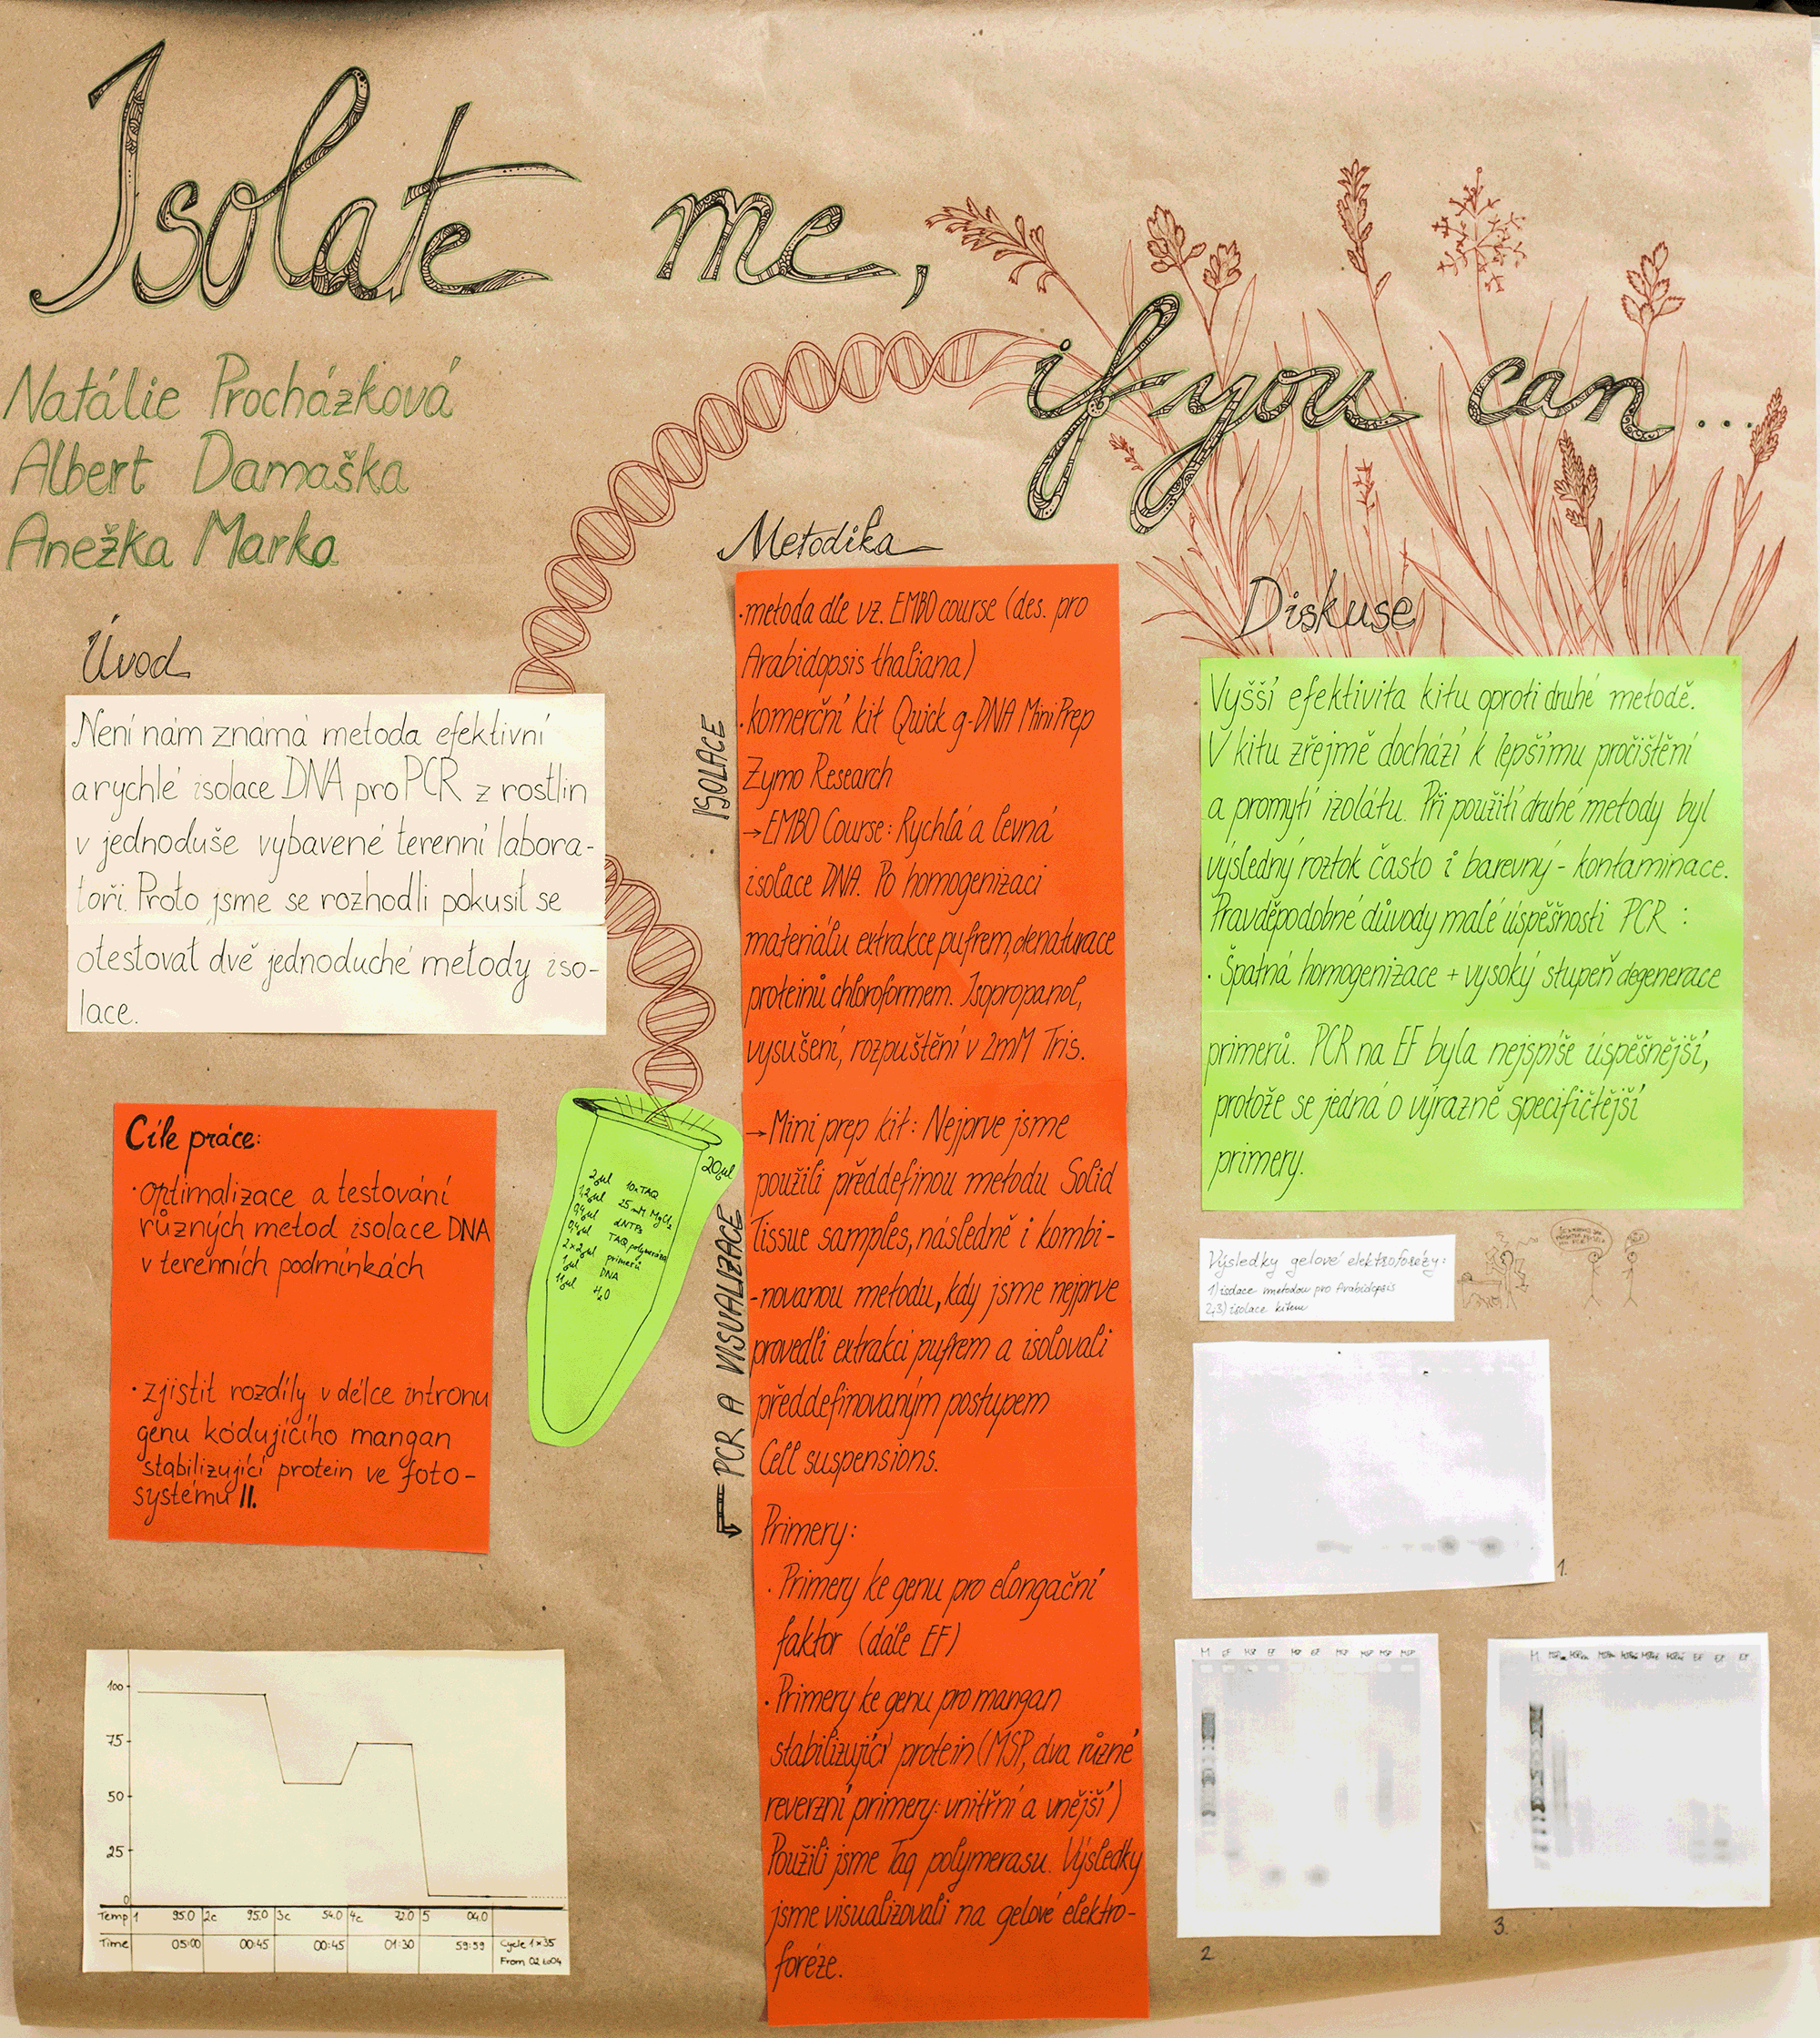 Isolate me,
if you can...
Natálie Procházková
Albert Damaška
Anežka Marka
Úvod
Není nám známá metoda efektivní
a rychlé isolace DNA pro PCR z rostlin
v jednoduše vybavené terenní labora-
toři. Proto jsme se rozhodli pokusit se
otestovat dvě jednoduché metody iso-
lace.
Cíle práce:
• optimalizace a testování
různých metod isolace DNA
v terenních podmínkách
• zjistit rozdíly v délce intronu
genu kódujícího mangan
stabilizující protein ve foto-
systému II.
20µl
2µl 10xTAQ
1,2µl 25mM MgCl2
0,4µl dNTPs
0,4µl TAQ polymeráza
2x2µl primerů
1µl DNA
11µl H2O
100
75
50
25
0
Temp 1 95.0 2c 95.0 3c 54.0 4c 72.0 5 04.0
Time 05:00 00:45 00:45 01:30 59:59 Cycle 1x35
From 02 to 04
Metodika
ISOLACE
• metoda dle vz. EMBO course (des. pro
Arabidopsis thaliana)
• komerční kit Quick g-DNA MiniPrep
Zymo Research
→ EMBO Course: Rychlá a levná
isolace DNA. Po homogenizaci
materiálu extrakce pufrem, denaturace
proteinů chloroformem. Isopropanol,
vysušení, rozpuštění v 2mM Tris.
→ Mini prep kit: Nejprve jsme
použili předdefinou metodu Solid
Tissue samples, následně i kombi-
-novanou metodu, kdy jsme nejprve
provedli extrakci pufrem a isolovali
předdefinovaným postupem
Cell suspensions.
PCR A VISUALIZACE
Primery:
• Primery ke genu pro elongační
faktor (dále EF)
• Primery ke genu pro mangan
stabilizující protein (MSP, dva různé
reverzní primery: vnitřní a vnější)
Použili jsme Taq polymerasu. Výsledky
jsme visualizovali na gelové elektro-
foréze.
Diskuse
Vyšší efektivita kitu oproti druhé metodě.
V kitu zřejmě dochází k lepšímu pročištění
a promytí izolátu. Při použití druhé metody byl
výsledný roztok často i barevný - kontaminace.
Pravděpodobné důvody malé úspěšnosti PCR :
• Špatná homogenizace + vysoký stupeň degenerace
primerů. PCR na EF byla nejspíše úspěšnější,
protože se jedná o výrazně specifičtější
primery.
Výsledky gelové elektroforézy:
1) isolace metodou pro Arabidopsis
2,3) isolace kitem
1.
M EF MSP EF MSP EF MSP MSP MSP MSP
2
M EF EF EF
3.